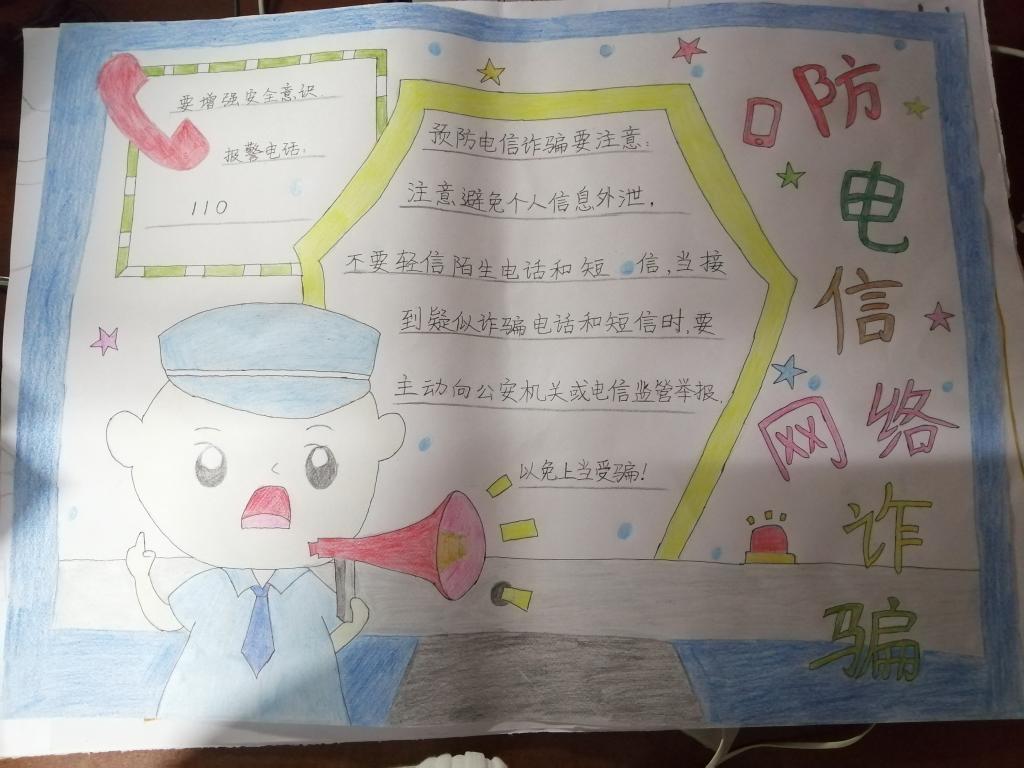 要增强安全意识.
报警电话:
110
预防电信诈骗要注意:
注意避免个人信息外泄,
不要轻信陌生电话和短信,当接
到疑似诈骗电话和短信时,要
主动向公安机关或电信监管举报.
以免上当受骗!
防电信网络诈骗